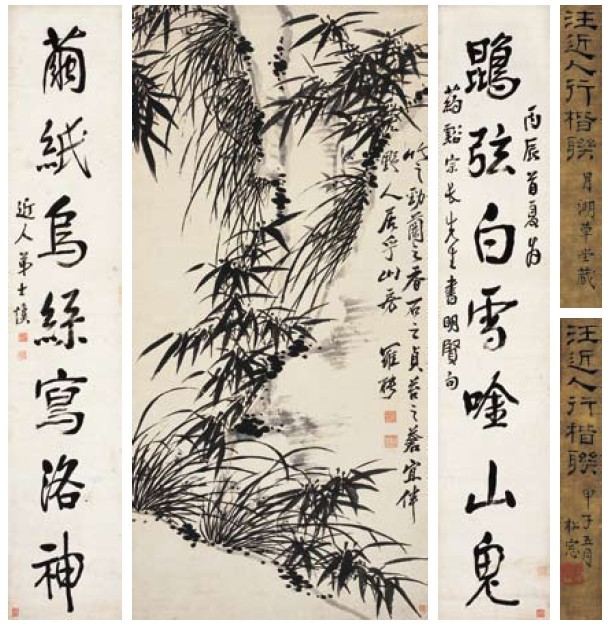 汪近人行楷聯
月湖草堂藏
汪近人行楷聯
甲子五月
松窗
丙辰首夏為
鵾弦白雪唫山鬼
葯谿宗長先生書明賢句
竹之勁蘭之香石之貞苔之蒼宜伴
野人居乎山 羅聘
繭紙烏絲寫洛神
近人弟士慎